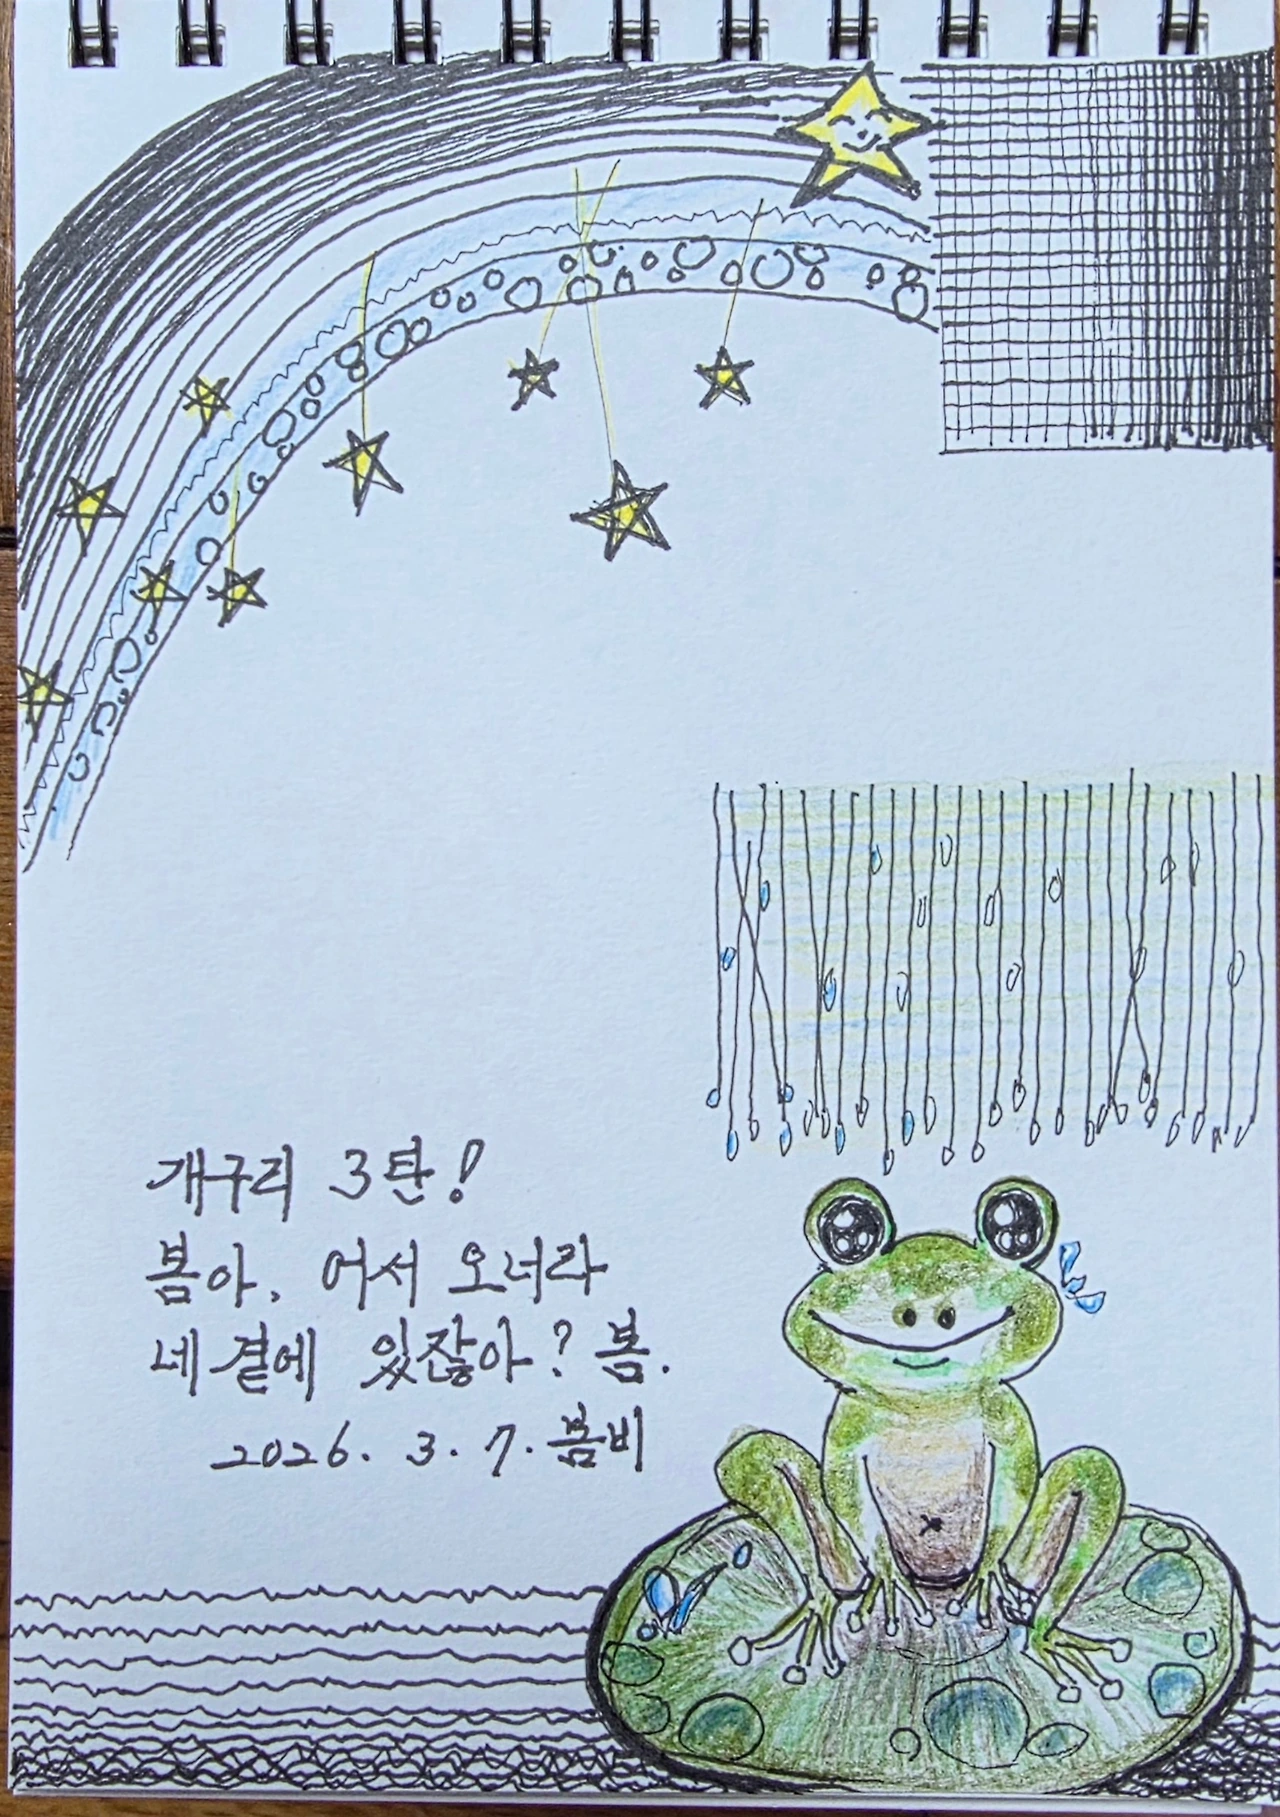 개구리 3탄!
봄아, 어서 오너라
네 곁에 있잖아? 봄.
2026. 3. 7. 봄비